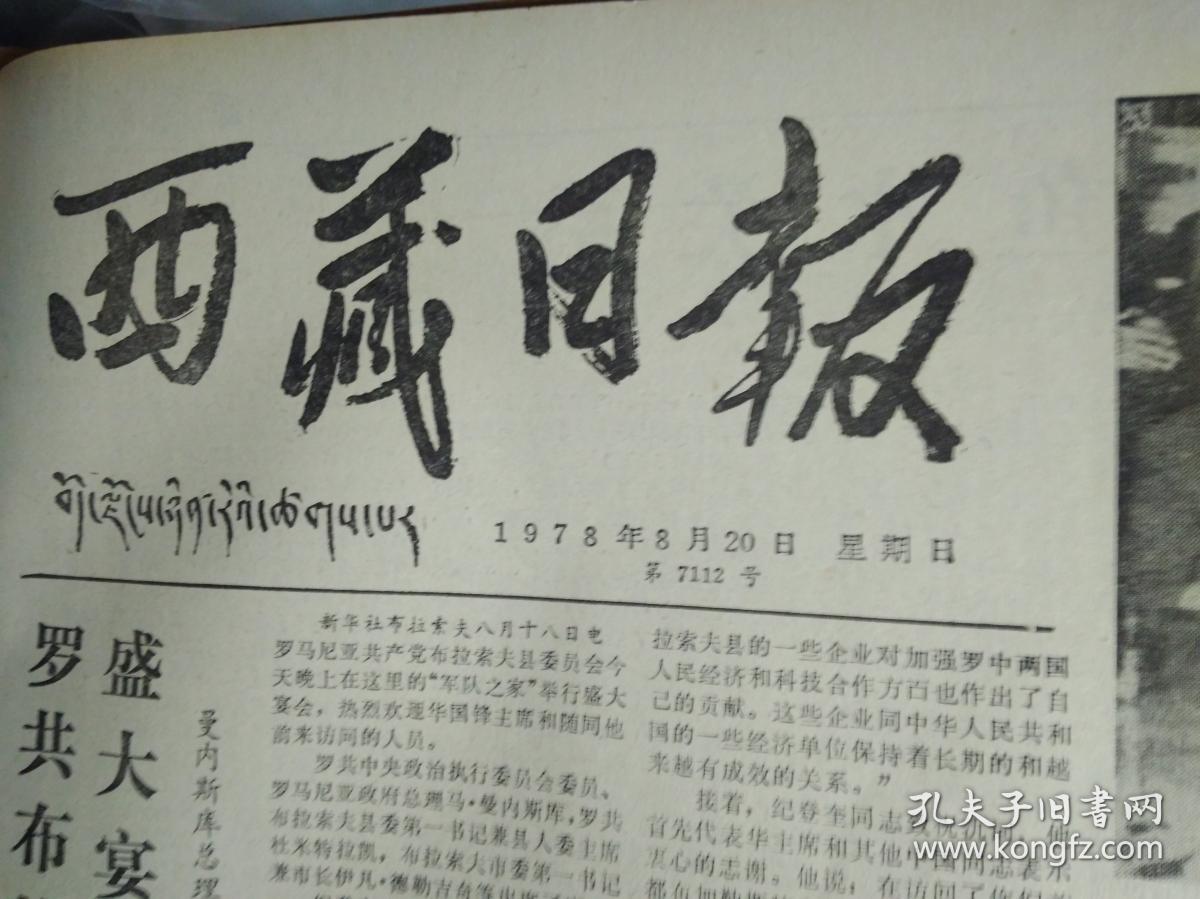 西藏日报
1978年8月20日 星期日
第 7112 号
盛大宴
罗共布
曼内斯库总理
新华社布拉索夫八月十八日电
罗马尼亚共产党布拉索夫县委员会今
天晚上在这里的“军队之家”举行盛大
宴会，热烈欢迎华国锋主席和随同他
前来访问的人员。
罗共中央政治执行委员会委员、
罗马尼亚政府总理马·曼内斯库，罗共
布拉索夫县委第一书记兼县人委主席
杜米特拉凯，布拉索夫市委第一书记
兼市长伊凡·德勒吉奇等出席
拉索夫县的一些企业对加强罗中两国
人民经济和科技合作方面也作出了自
己的贡献。这些企业同中华人民共和
国的一些经济单位保持着长期的和越
来越有成效的关系。”
接着，纪登奎同志致祝酒词，他
首先代表华主席和其他中国同志表示
衷心的感谢。他说，在访问了你们首
孔夫子旧书网
www.kongfz.com